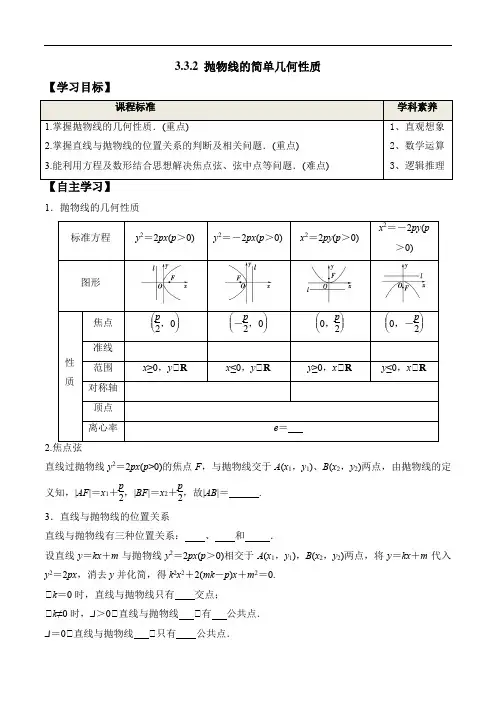 3.3.2 抛物线的简单几何性质
【学习目标】
课程标准 学科素养
1.掌握抛物线的几何性质．(重点)
2.掌握直线与抛物线的位置关系的判断及相关问题．(重点)
3.能利用方程及数形结合思想解决焦点弦、弦中点等问题．(难点)
1、直观想象
2、数学运算
3、逻辑推理
【自主学习】
1．抛物线的几何性质
标准方程 y²＝2px(p＞0) y²＝－2px(p＞0) x²＝2py(p＞0) x²＝－2py(p＞0)
图形
性质
焦点 (p/2，0) (－p/2，0) (0，p/2) (0，－p/2)
准线
范围 x≥0，y∈R x≤0，y∈R y≥0，x∈R y≤0，x∈R
对称轴
顶点
离心率 e＝___
2.焦点弦
直线过抛物线 y²＝2px(p>0)的焦点 F，与抛物线交于 A(x₁，y₁)、B(x₂，y₂)两点，由抛物线的定
义知，|AF|＝x₁＋p/2，|BF|＝x₂＋p/2，故|AB|＝______．
3．直线与抛物线的位置关系
直线与抛物线有三种位置关系：___、___和___．
设直线 y＝kx＋m 与抛物线 y²＝2px(p＞0)相交于 A(x₁，y₁)，B(x₂，y₂)两点，将 y＝kx＋m 代入
y²＝2px，消去 y 并化简，得 k²x²＋2(mk－p)x＋m²＝0.
k＝0 时，直线与抛物线只有___交点；
k≠0 时，Δ＞0 直线与抛物线___有___公共点．
Δ＝0 直线与抛物线___只有___公共点．